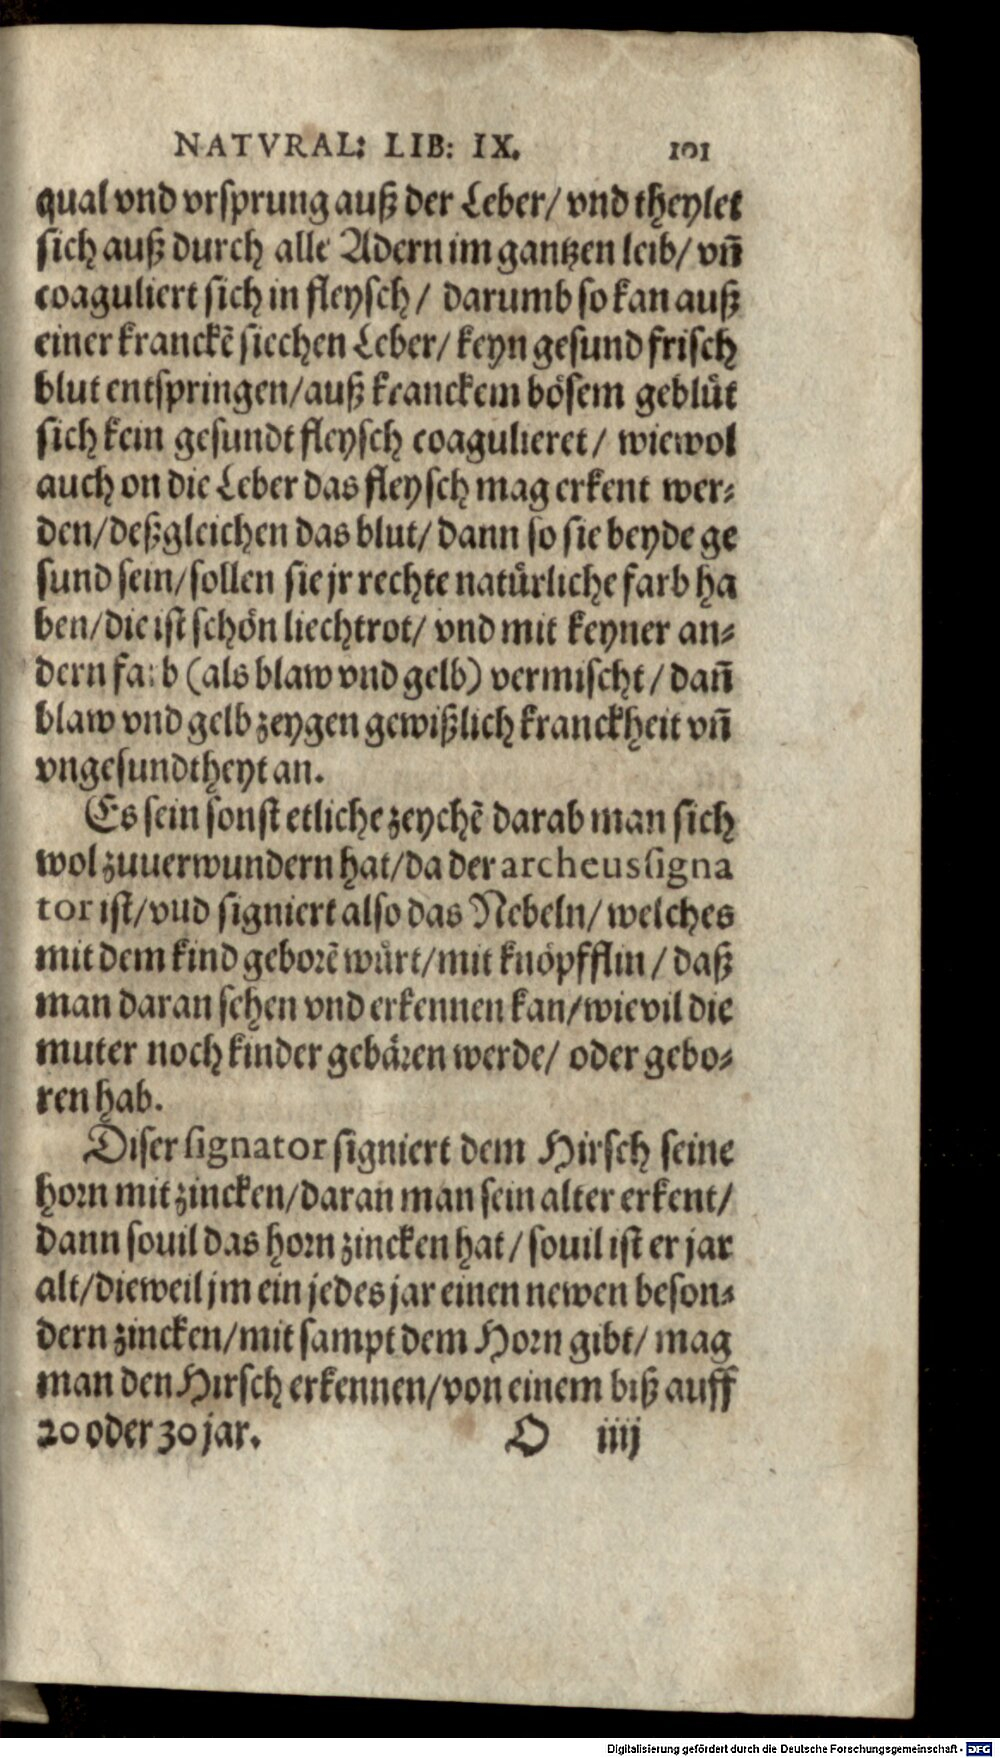 NATVRAL: LIB: IX. 101
qual vnd vrsprung auß der Leber/ vnd theylet
sich auß durch alle Adern im gantzen leib/ vñ
coaguliert sich in fleysch/ darumb so kan auß
einer kranckẽ siechen Leber/ keyn gesund frisch
blut entspringen/ auß kranckem bösem geblüt
sich kein gesundt fleysch coagulieret/ wiewol
auch on die Leber das fleysch mag erkent wer-
den/ deßgleichen das blut/ dann so sie beyde ge
sund sein/ sollen sie jr rechte natürliche farb ha
ben/ die ist schön liechtrot/ vnd mit keyner an-
dern farb (als blaw vnd gelb) vermischt/ dañ
blaw vnd gelb zeygen gewißlich kranckheit vñ
vngesundtheyt an.
Es sein sonst etliche zeychẽ darab man sich
wol zuuerwundern hat/ da der archeus signa
tor ist/ vud signiert also das Nebeln/ welches
mit dem kind geborẽ würt/ mit knöpfflin/ daß
man daran sehen vnd erkennen kan/ wie vil die
muter noch kinder gebären werde/ oder gebo-
ren hab.
Diser signator signiert dem Hirsch seine
horn mit zincken/ daran man sein alter erkent/
dann souil das horn zincken hat/ souil ist er jar
alt/ dieweil jm ein jedes jar einen newen beson-
dern zincken/ mit sampt dem Horn gibt/ mag
man den Hirsch erkennen/ von einem biß auff
20 oder 30 jar. O iiij
Digitalisierung gefördert durch die Deutsche Forschungsgemeinschaft - DFG